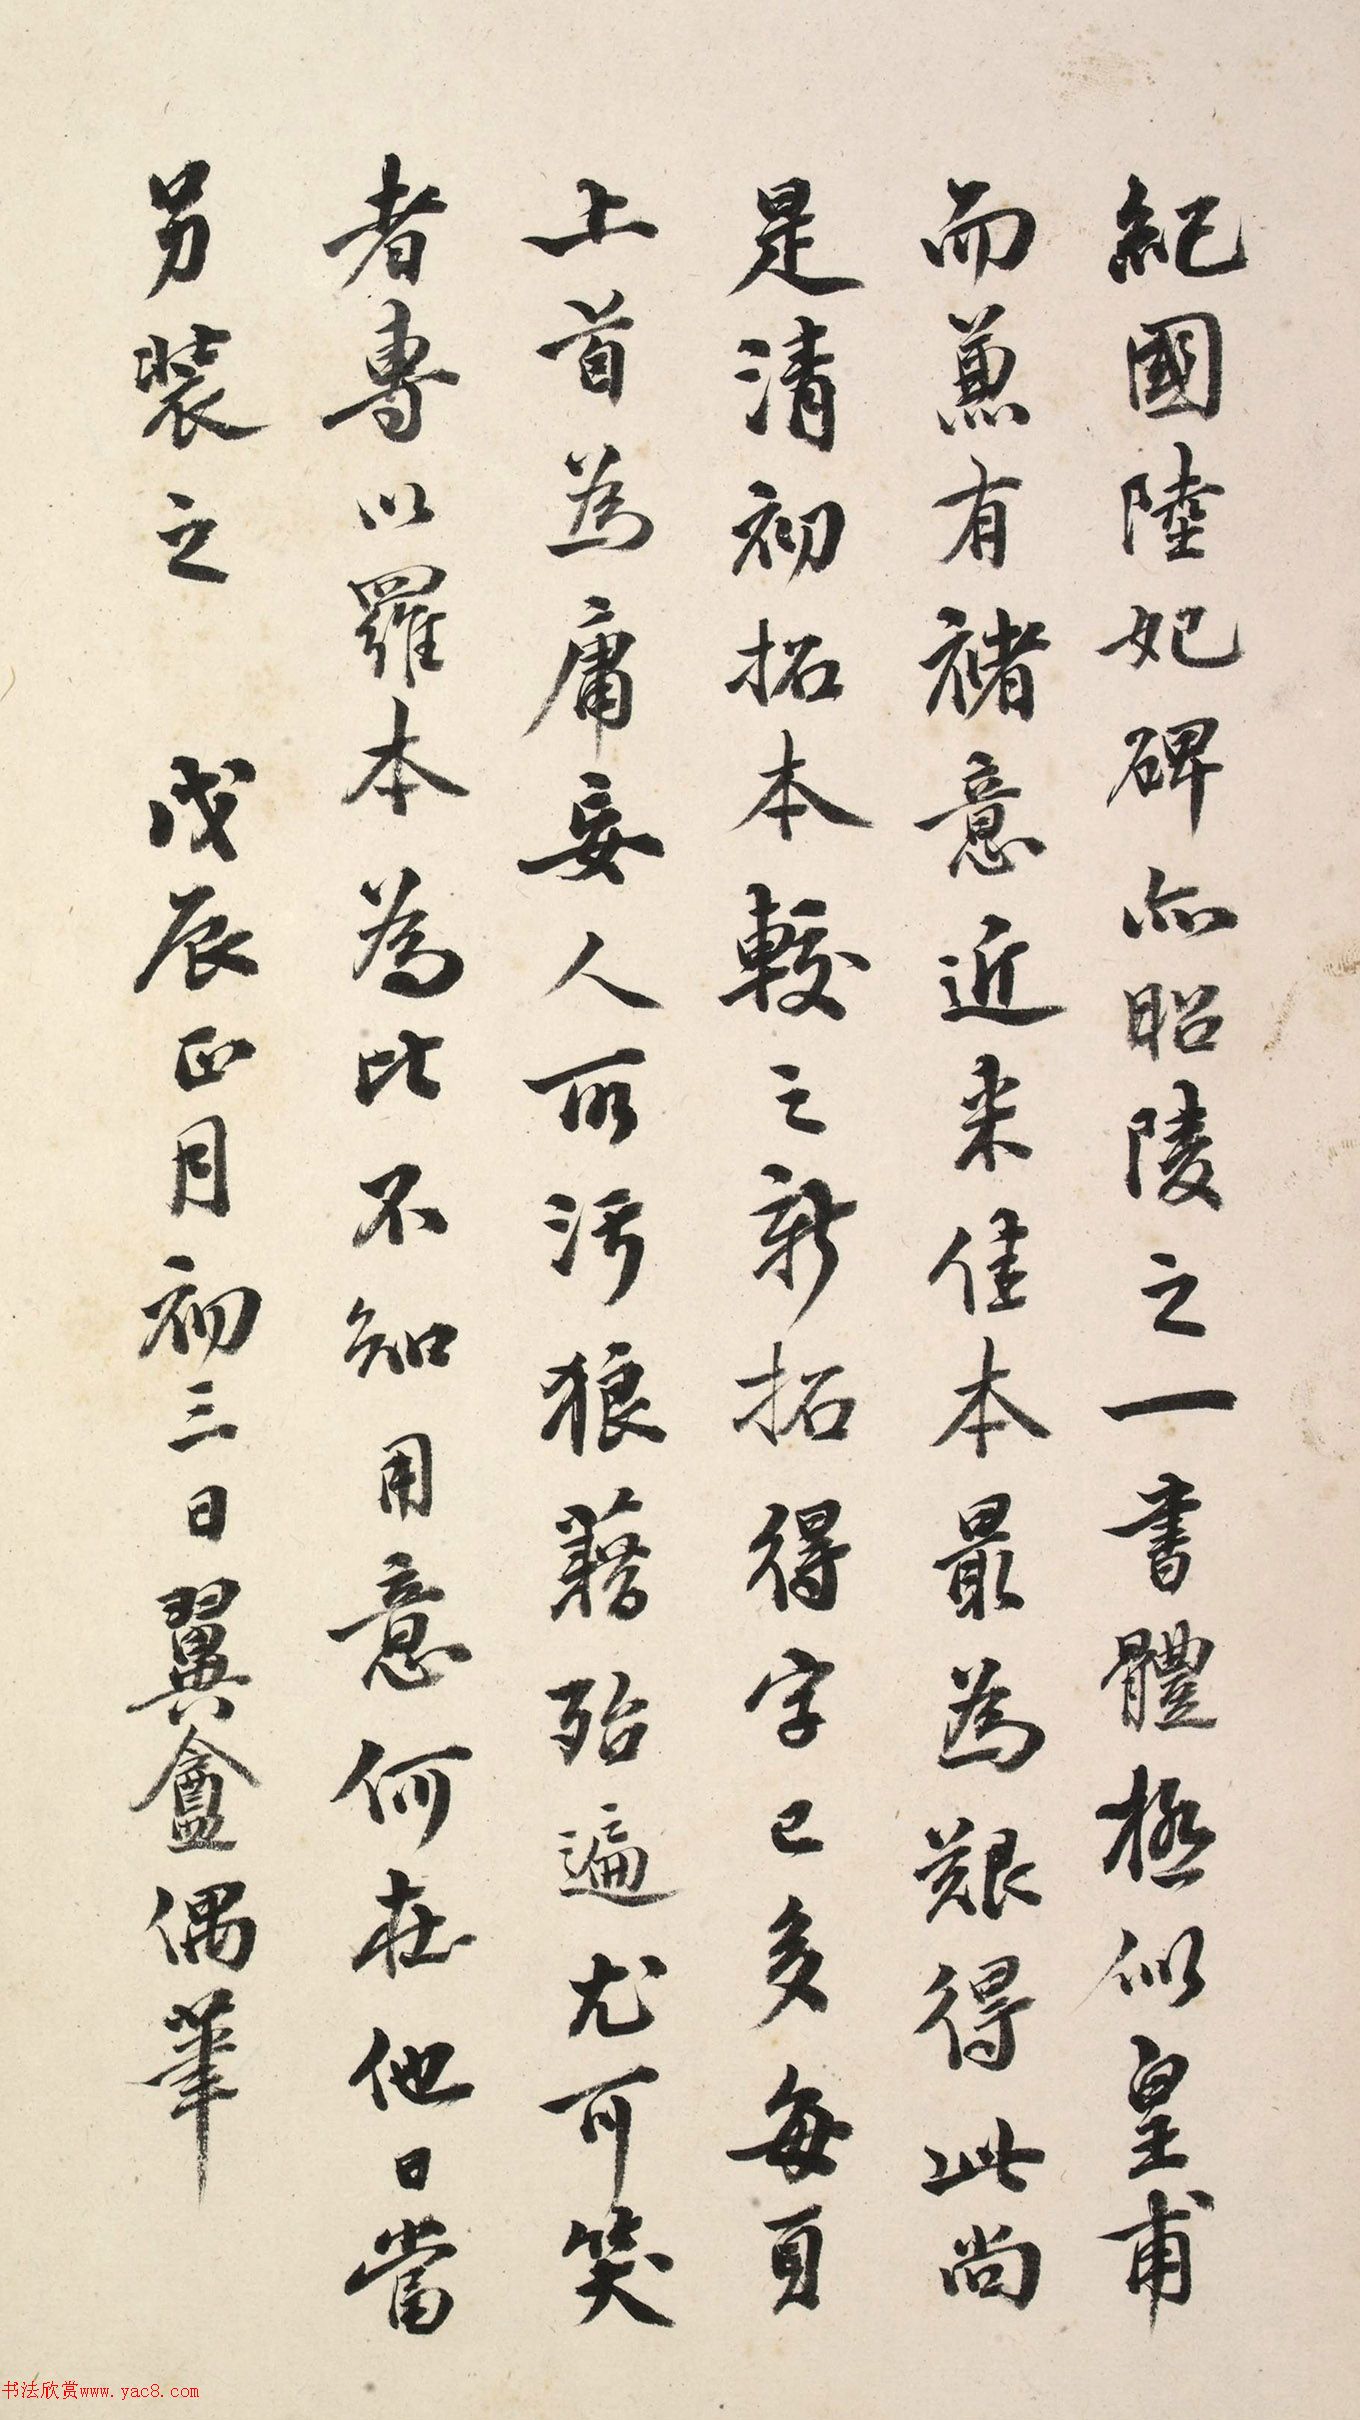 紀國陸妃碑亦昭陵之一書體極似皇甫
而兼有褚意近来佳本最為艱得此尚
是清初拓本較之新拓得字已多每頁
上首為庸妄人所污狼藉殆遍尤可笑
者專以羅本為比不知用意何在他日當
另裝之 戊辰正月初三日翼盦偶筆
书法欣赏www.yac8.com